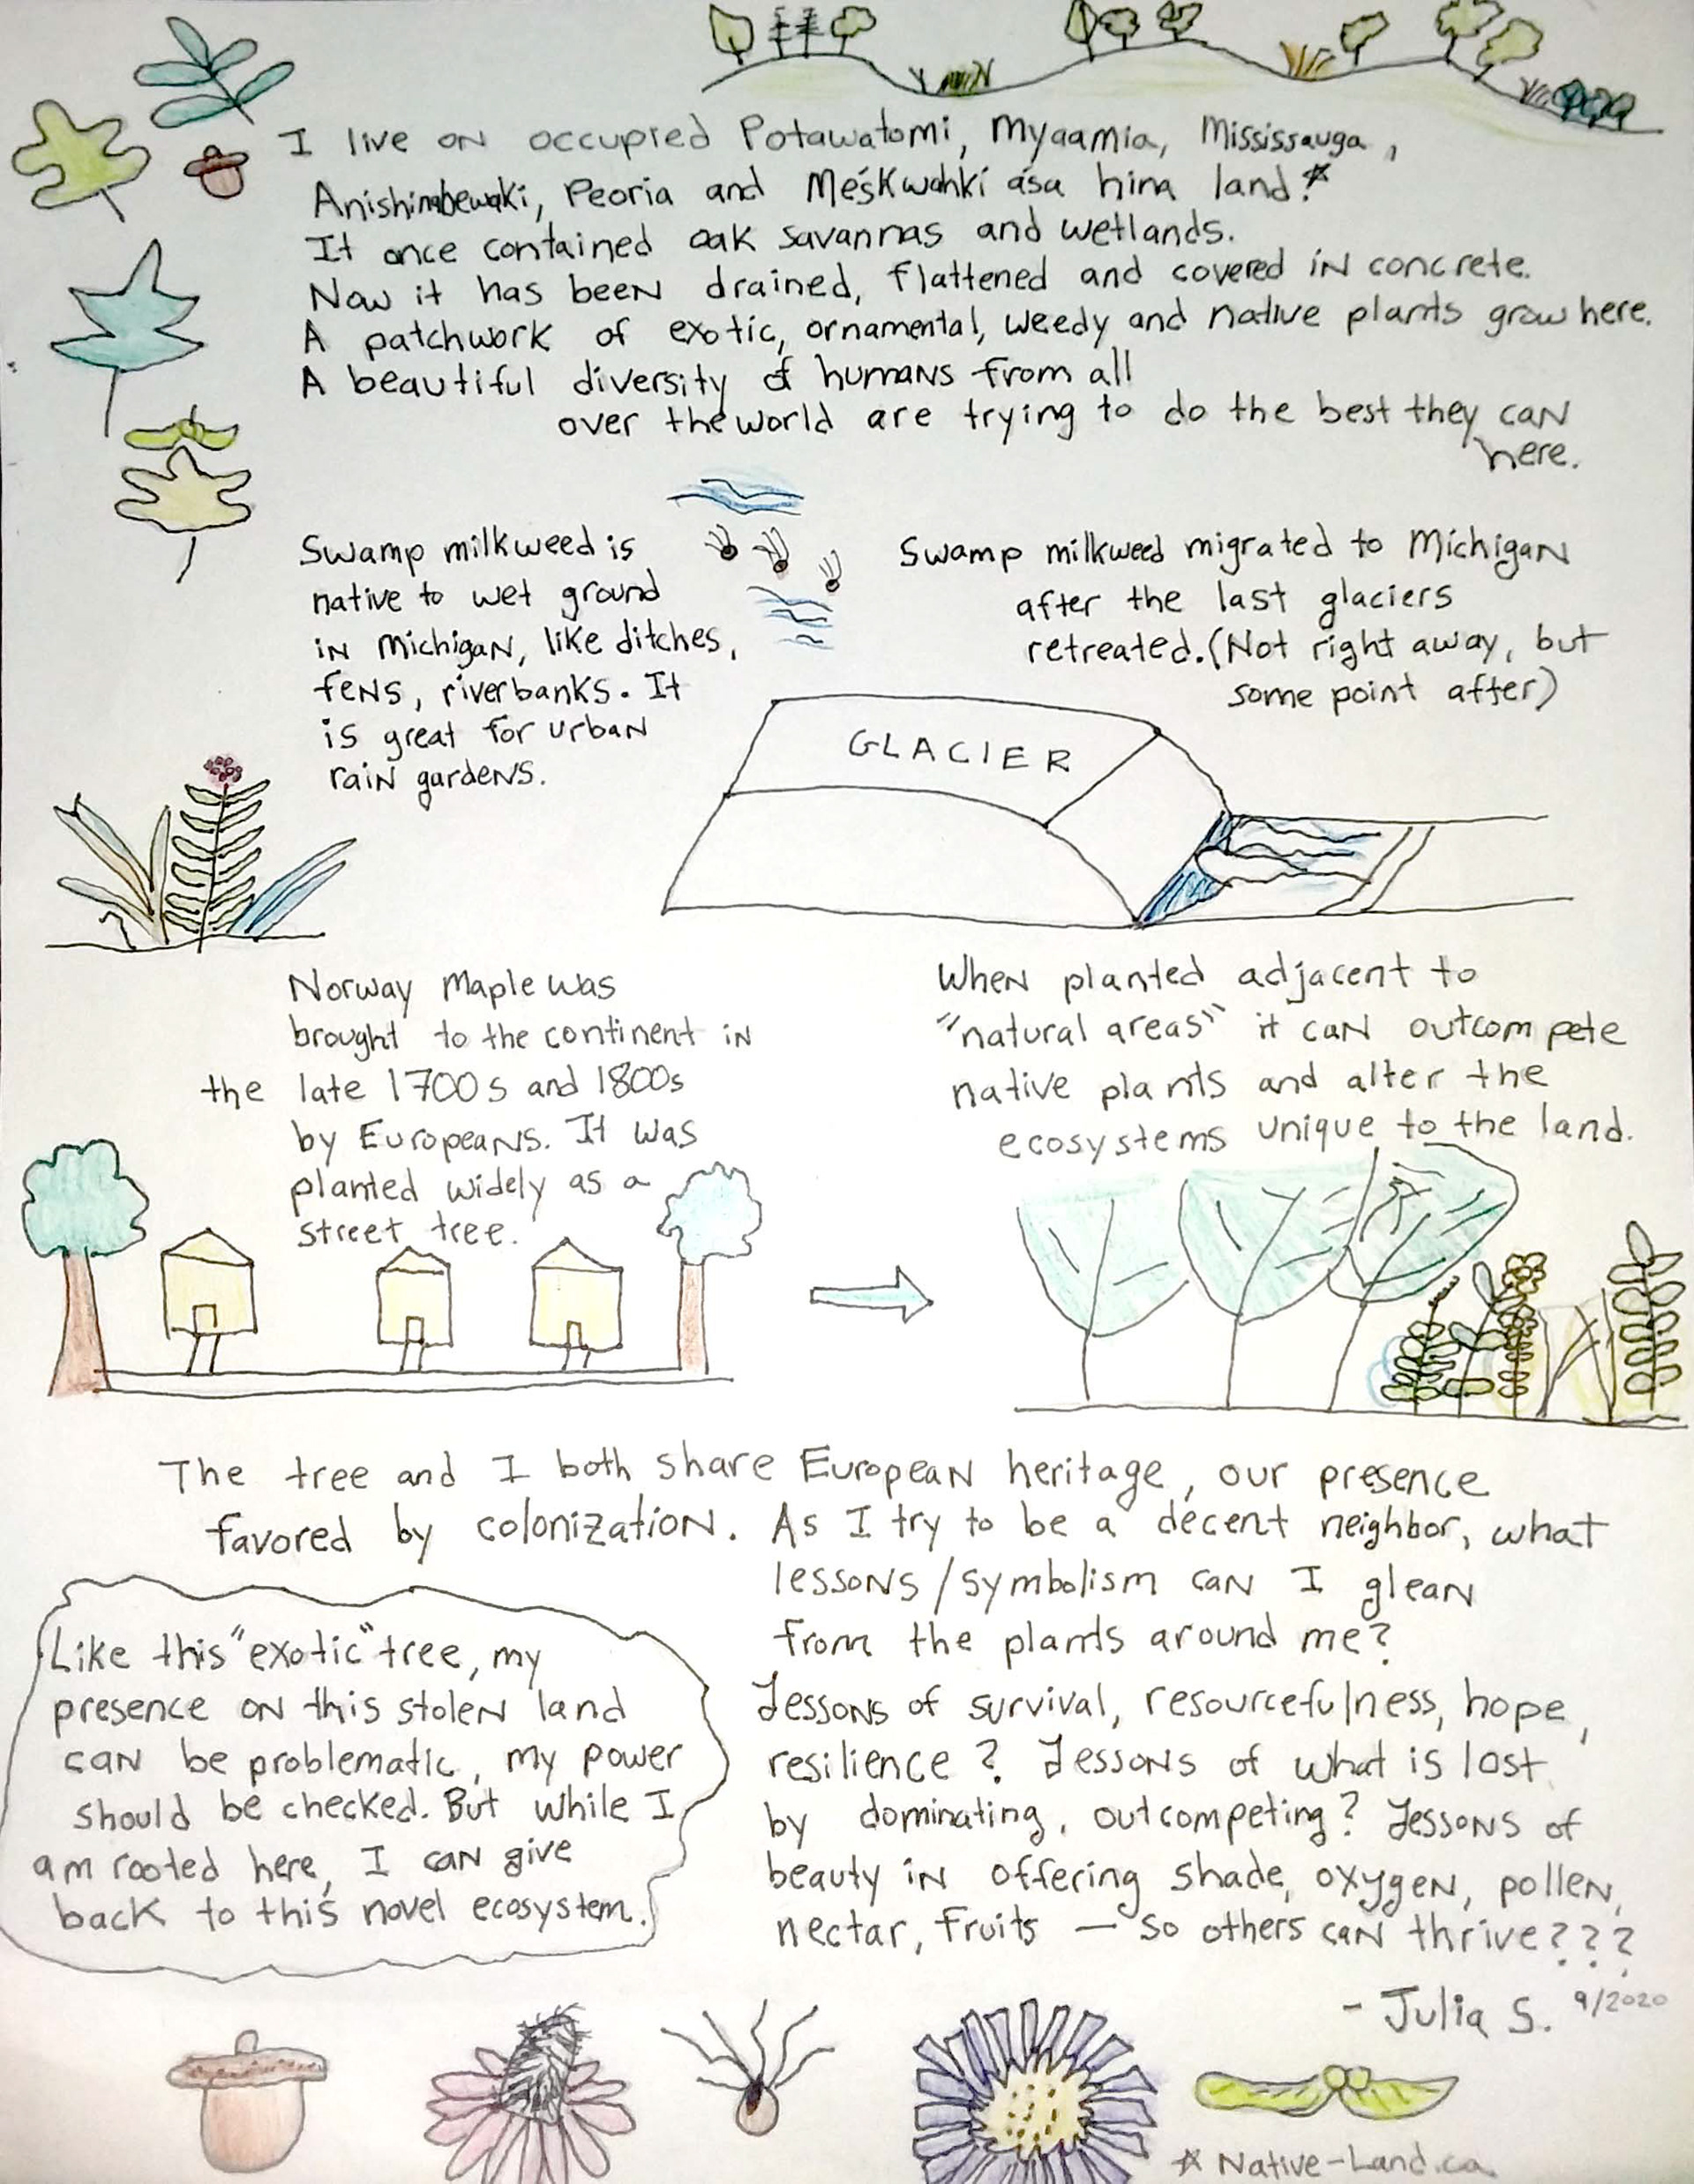 I live on occupied Potawatomi, Myaamia, Mississauga,
Anishinabewaki, Peoria and Meškwahki·aša·hina land!*
It once contained oak savannas and wetlands.
Now it has been drained, flattened and covered in concrete.
A patchwork of exotic, ornamental, weedy and native plants grow here.
A beautiful diversity of humans from all
over the world are trying to do the best they can
here.
Swamp milkweed is
native to wet ground
in Michigan, like ditches,
fens, riverbanks. It
is great for urban
rain gardens.
Swamp milkweed migrated to Michigan
after the last glaciers
retreated. (Not right away, but
some point after)
GLACIER
Norway Maple was
brought to the continent in
the late 1700s and 1800s
by Europeans. It was
planted widely as a
street tree.
When planted adjacent to
"natural areas" it can outcompete
native plants and alter the
ecosystems unique to the land.
The tree and I both share European heritage, our presence
favored by colonization. As I try to be a decent neighbor, what
lessons/symbolism can I glean
from the plants around me?
Lessons of survival, resourcefulness, hope,
resilience? Lessons of what is lost
by dominating, outcompeting? Lessons of
beauty in offering shade, oxygen, pollen,
nectar, fruits — so others can thrive???
Like this "exotic" tree, my
presence on this stolen land
can be problematic, my power
should be checked. But while I
am rooted here, I can give
back to this novel ecosystem.
- Julia S. 9/2020
* Native-Land.ca